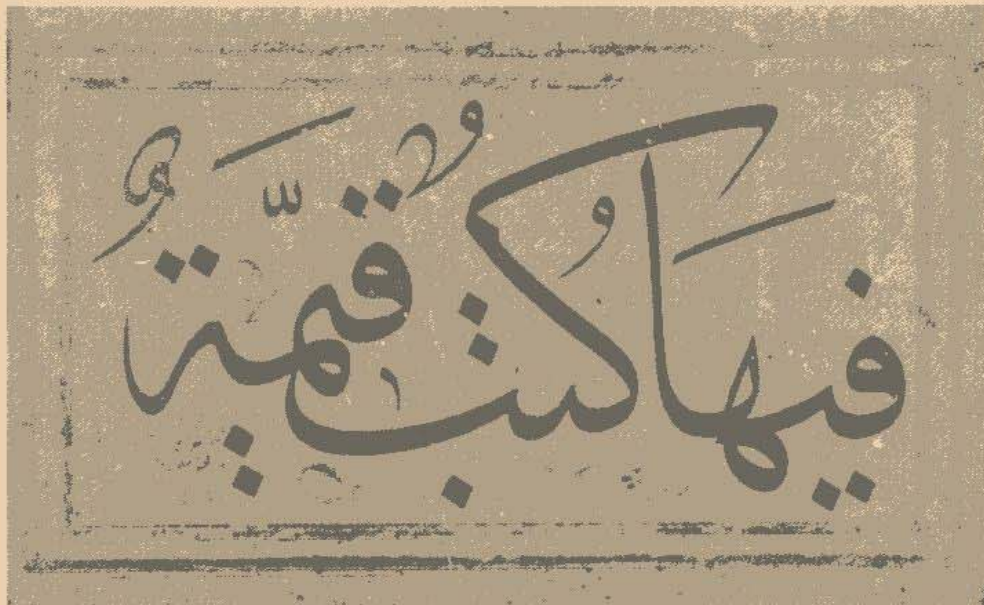 فيها كتبٌ قيّمَةٌ